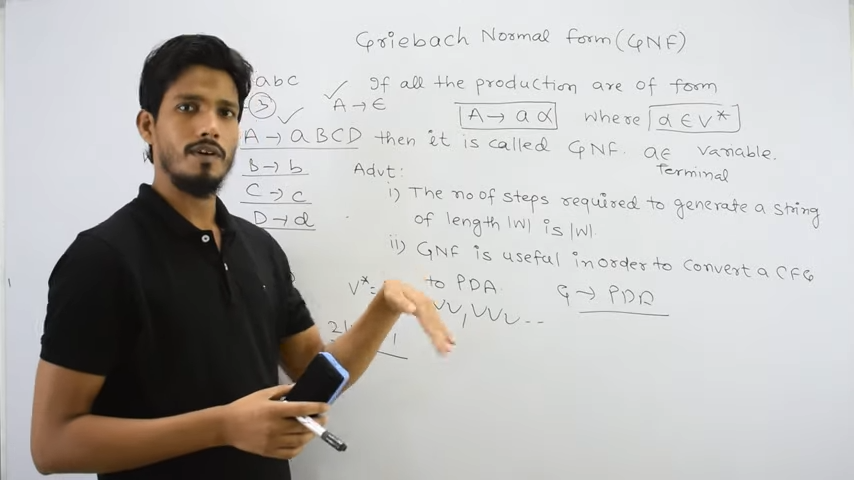 Griebach Normal form (GNF)
abc
3
A → ϵ
If all the production are of form
A → a α where α ∈ V*
A → aBCD then it is called GNF. a∈ variable.
Terminal
B → b
C → c
D → d
Advt:
i) The no of steps required to generate a string
of length |W| is |W|.
ii) GNF is useful inorder to convert a CFG
to PDA.
G → PDA
V* =
VV, VVV - -
2|
1